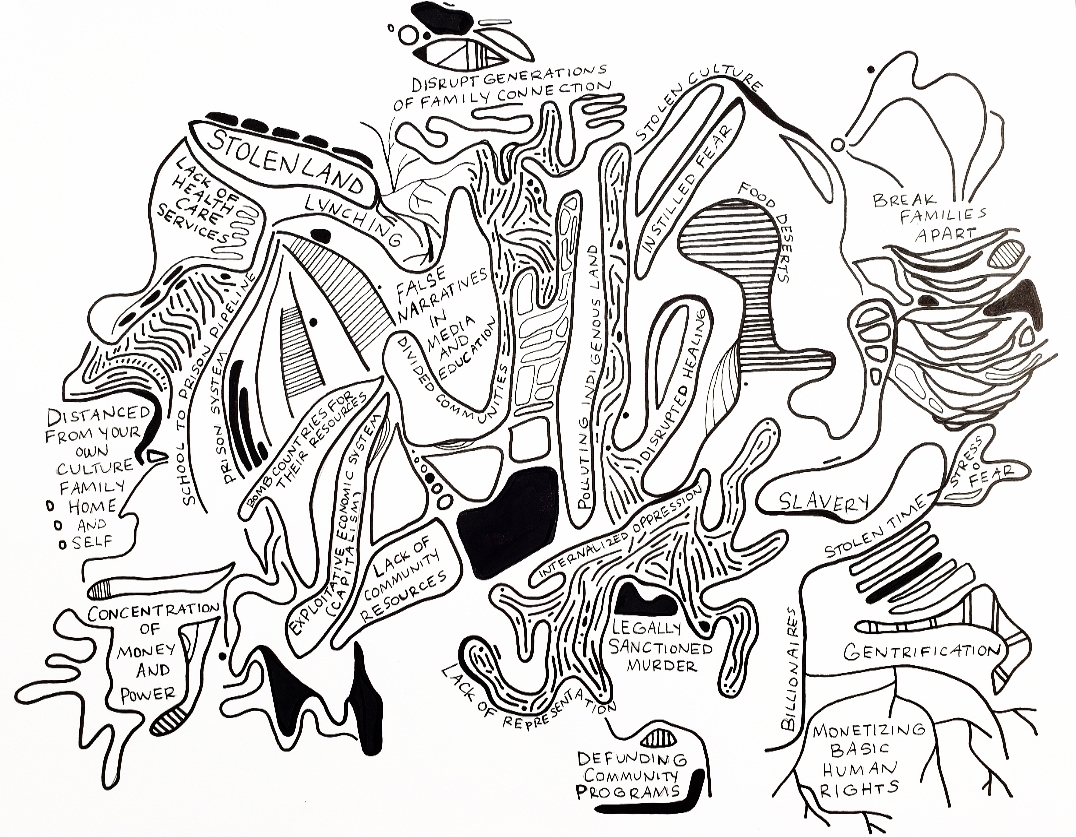 DISRUPT GENERATIONS
OF FAMILY CONNECTION
STOLEN CULTURE
STOLEN LAND
LACK OF
HEALTH
CARE
SERVICES
LYNCHING
INSTILLED FEAR
FOOD DESERTS
BREAK
FAMILIES
APART
FALSE
NARRATIVES
IN
MEDIA
AND
EDUCATION
DIVIDED COMMUNITIES
POLLUTING INDIGENOUS LAND
DISRUPTED HEALING
SCHOOL TO PRISON PIPELINE
PRISON SYSTEM
DISTANCED
FROM YOUR
OWN
CULTURE
FAMILY
HOME
AND
SELF
BOMB COUNTRIES FOR
THEIR RESOURCES
EXPLOITATIVE ECONOMIC SYSTEM
(CAPITALISM)
LACK OF
COMMUNITY
RESOURCES
INTERNALIZED OPPRESSION
SLAVERY
STRESS
OF
FEAR
STOLEN TIME
CONCENTRATION
OF
MONEY
AND
POWER
LEGALLY
SANCTIONED
MURDER
LACK OF REPRESENTATION
BILLIONAIRES
GENTRIFICATION
MONETIZING
BASIC
HUMAN
RIGHTS
DEFUNDING
COMMUNITY
PROGRAMS